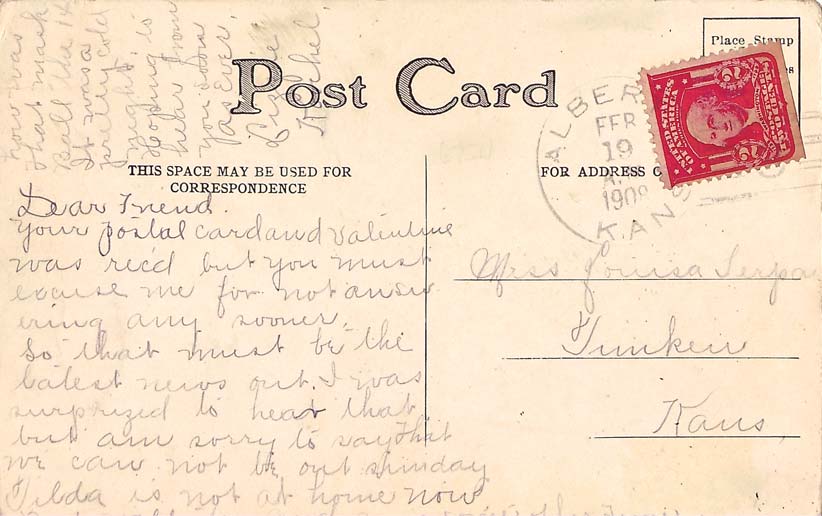 Post Card
Place Stamp
THIS SPACE MAY BE USED FOR
CORRESPONDENCE
FOR ADDRESS
ALBER
FEB
19
1908
KANS
UNITED STATES
OF AMERICA
2 2
Dear Friend.
Your postal card and valentine
was rec'd but you must
excuse me for not answ
ering any sooner.
So that must be the
latest news out. I was
surprized to hear that
but am sorry to say that
we can not be out sunday
Tilda is not at home now
how was
that mask
Ball the 14
It was a
pretty cold
night, is
Hoping to
hear from
you soon
as Ever.
Lizzie
Miss Louisa Serpan
Timken
Kans.